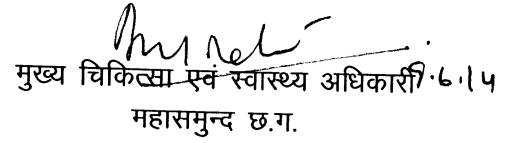 मुख्य चिकित्सा एवं स्वास्थ्य अधिकारी
महासमुन्द छ.ग.